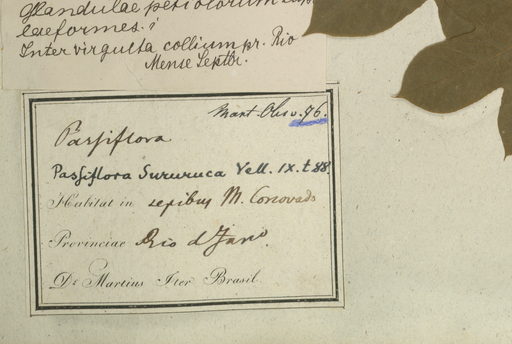 Glandulae petiolorum
laeformes.
Inter virgulta collium pr. Rio
Mense Septbr.
Mart. Obs. 76.
Paſsiflora
Paſsiflora Sururuca Vell. IX. t 88.
Habitat in sepibus M. Corcovado
Provinciae Rio d Jano.
Dr. Martius Iter Brasil.